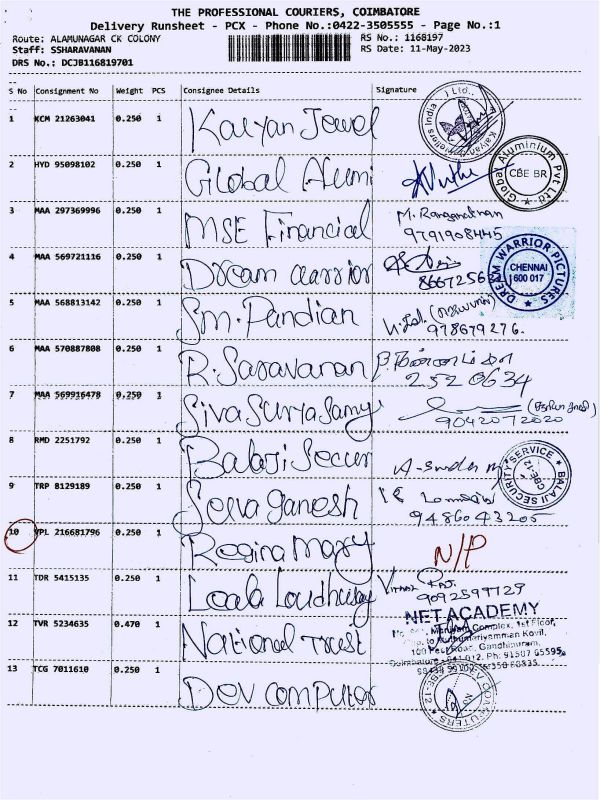 THE PROFESSIONAL COURIERS, COIMBATORE
Delivery Runsheet - PCX - Phone No.:0422-3505555 - Page No.:1
Route: ALAMUNAGAR CK COLONY RS No.: 1168197
Staff: SSHARAVANAN RS Date: 11-May-2023
DRS No.: DCJB116819701
S No Consignment No Weight PCS Consignee Details Signature
1 KCM 21263041 0.250 1 Kalyan Jewel
2 HYD 95098102 0.250 1 Global Alumi
Global Aluminium Pvt Ltd CBE BR
3 MAA 297369996 0.250 1 MSE Financial M. Ranganathan
9791908445
4 MAA 569721116 0.250 1 Dream warrior
DREAM WARRIOR PICTURES CHENNAI 600 017
5 MAA 568813142 0.250 1 Sm. Pandian
978679276.
6 MAA 570887808 0.250 1 R. Saravanan
2520634
7 MAA 569916478 0.250 1 Siva Surya Samy
9042072020
8 RMD 2251792 0.250 1 Balaji Secur
BALAJI SECURITY SERVICE CBE-12
9 TRP 8129189 0.250 1 Selva ganesh
9486043205
10 VPL 216681796 0.250 1 Regina Mary N/P
11 TDR 5415135 0.250 1
9092597729
12 TVR 5234635 0.470 1 National Trust
NET ACADEMY
Complex, 1st Floor,
Kovil,
Gandhipuram,
13 TCG 7011610 0.250 1 Dev Computer